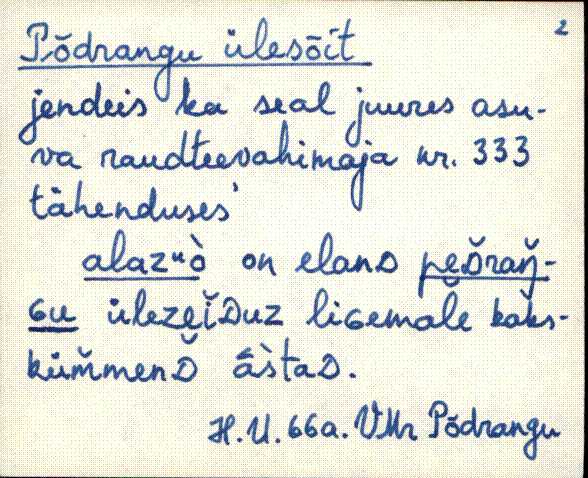 2
Põdrangu ülesõit
jendeis ka seal juures asu-
va raudteevahimaja nr. 333
tähenduses'
alaz"ò on elanᴅ pe̮ᴅ̆ran̆-
ɢu üleze̮ĭᴅuz liɢemale kak̆s-
küm̆menᴅ̆ âstaᴅ.
H.U. 66a. VMr Põdrangu